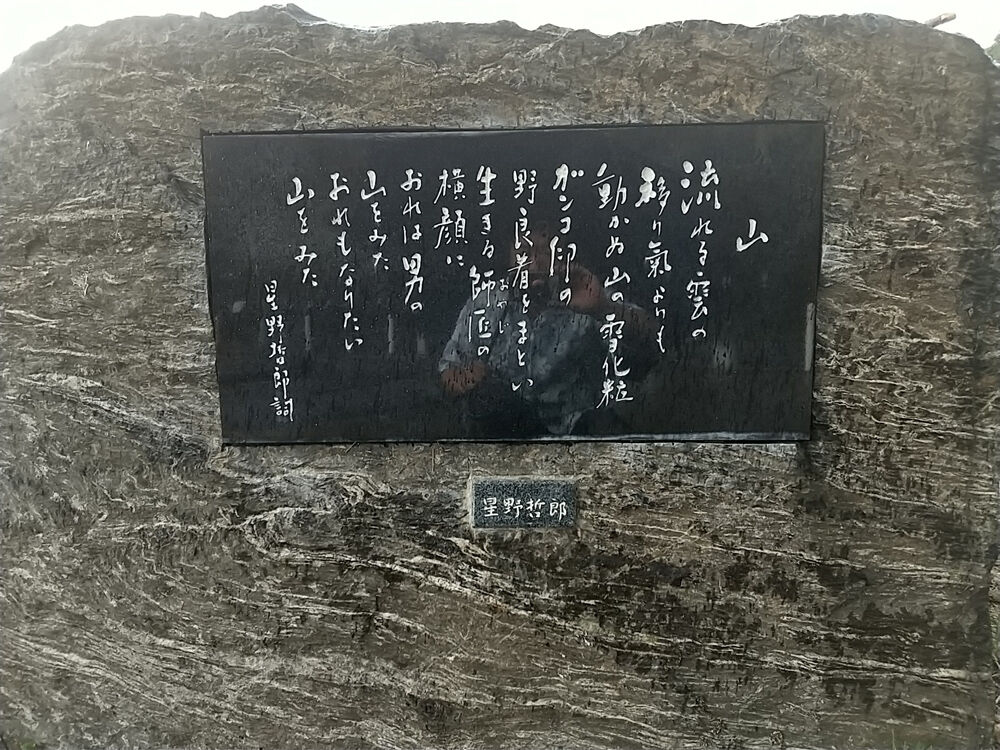 山
流れる雲の
移り氣よりも
動かぬ山の雪化粧
ガンコ印の
野良着をまとい
生きる師匠の
おやじ
横顔に
おれは男の
山をみた
おれもなりたい
山をみた
星野哲郎詞
星野哲郎